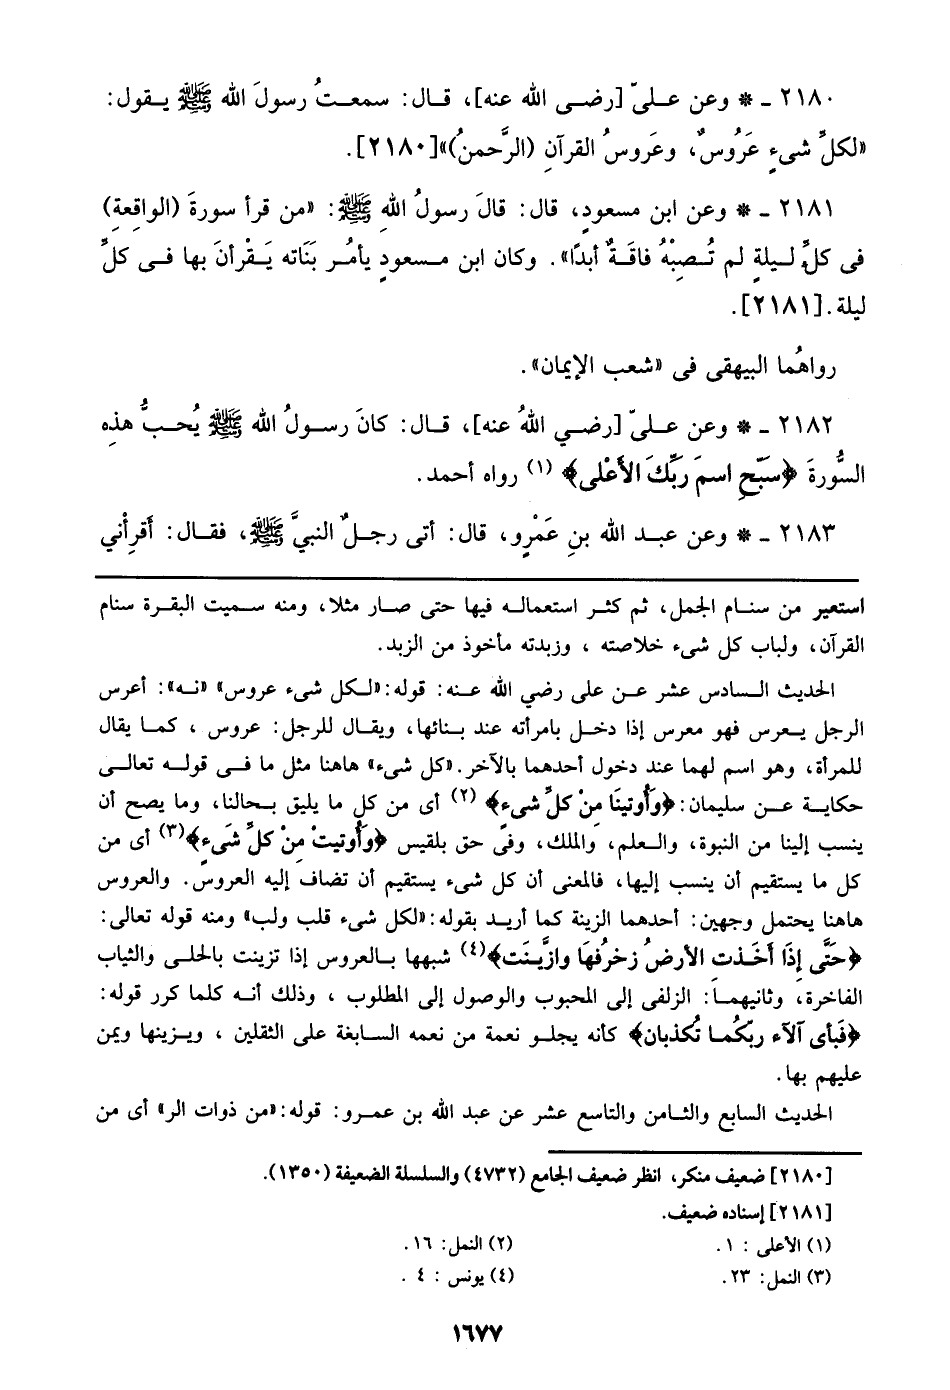 ٢١٨٠ ـ * وعن علىّ [رضى الله عنه]، قال: سمعتُ رسولَ الله ﷺ يقول:
«لكلِّ شىءٍ عَرُوسٌ، وعَروسُ القرآنِ (الرَّحمنُ)»[٢١٨٠].
٢١٨١ ـ * وعن ابن مسعودٍ، قال: قالَ رسولُ اللهِ ﷺ: «من قرأ سورةَ (الواقعةِ)
فى كلِّ ليلةٍ لم تُصِبْهُ فاقَةٌ أبدًا». وكان ابن مسعودٍ يأمُر بَنَاته يَقْرأنَ بها فى كلِّ
ليلة.[٢١٨١].
رواهُما البيهقى فى «شعب الإيمان».
٢١٨٢ ـ * وعن علىّ [رضي اللهُ عنه]، قال: كانَ رسولُ الله ﷺ يُحبُّ هذهِ
السُّورةَ ﴿سَبِّحِ اسمَ رَبِّكَ الأَعْلى﴾ (١) رواه أحمد.
٢١٨٣ ـ * وعن عبد الله بنِ عَمْرٍو، قال: أتى رجلٌ النبيَّ ﷺ، فقال: أَقرِأْني
استعير من سنام الجمل، ثم كثر استعماله فيها حتى صار مثلا، ومنه سميت البقرة سنام
القرآن، ولباب كل شىء خلاصته ، وزبدته مأخوذ من الزبد.
الحديث السادس عشر عن على رضي الله عنه: قوله:«لكل شىء عروس» «نه»: أعرس
الرجل يعرس فهو معرس إذا دخل بامرأته عند بنائها، ويقال للرجل: عروس ، كما يقال
للمرأة، وهو اسم لهما عند دخول أحدهما بالآخر.«كل شىء» هاهنا مثل ما فى قوله تعالى
حكاية عن سليمان:﴿وأُوتينَا مِنْ كلِّ شىءٍ﴾ (٢) أى من كل ما يليق بحالنا، وما يصح أن
ينسب إلينا من النبوة، والعلم، والملك، وفى حق بلقيس ﴿وأُوتيتْ مِنْ كلِّ شَىءٍ﴾(٣) أى من
كل ما يستقيم أن ينسب إليها، فالمعنى أن كل شىء يستقيم أن تضاف إليه العروس. والعروس
هاهنا يحتمل وجهين: أحدهما الزينة كما أريد بقوله:«لكل شىء قلب ولب» ومنه قوله تعالى:
﴿حَتَّى إِذَا أَخَذت الأرضُ زخرُفهَا وازَّينَت﴾(٤) شبهها بالعروس إذا تزينت بالحلى والثياب
الفاخرة، وثانيهما: الزلفى إلى المحبوب والوصول إلى المطلوب ، وذلك أنه كلما كرر قوله:
﴿فَبأى آلآء ربّكُما تُكذبان﴾ كأنه يجلو نعمة من نعمه السابغة على الثقلين ، ويزينها ويمن
عليهم بها.
الحديث السابع والثامن والتاسع عشر عن عبد الله بن عمرو: قوله:«من ذوات الر» أى من
[٢١٨٠] ضعيف منكر، انظر ضعيف الجامع (٤٧٣٢) والسلسلة الضعيفة (١٣٥٠).
[٢١٨١] إسناده ضعيف.
(١) الأعلى : ١. (٢) النمل: ١٦.
(٣) النمل: ٢٣. (٤) يونس : ٤ .
١٦٧٧